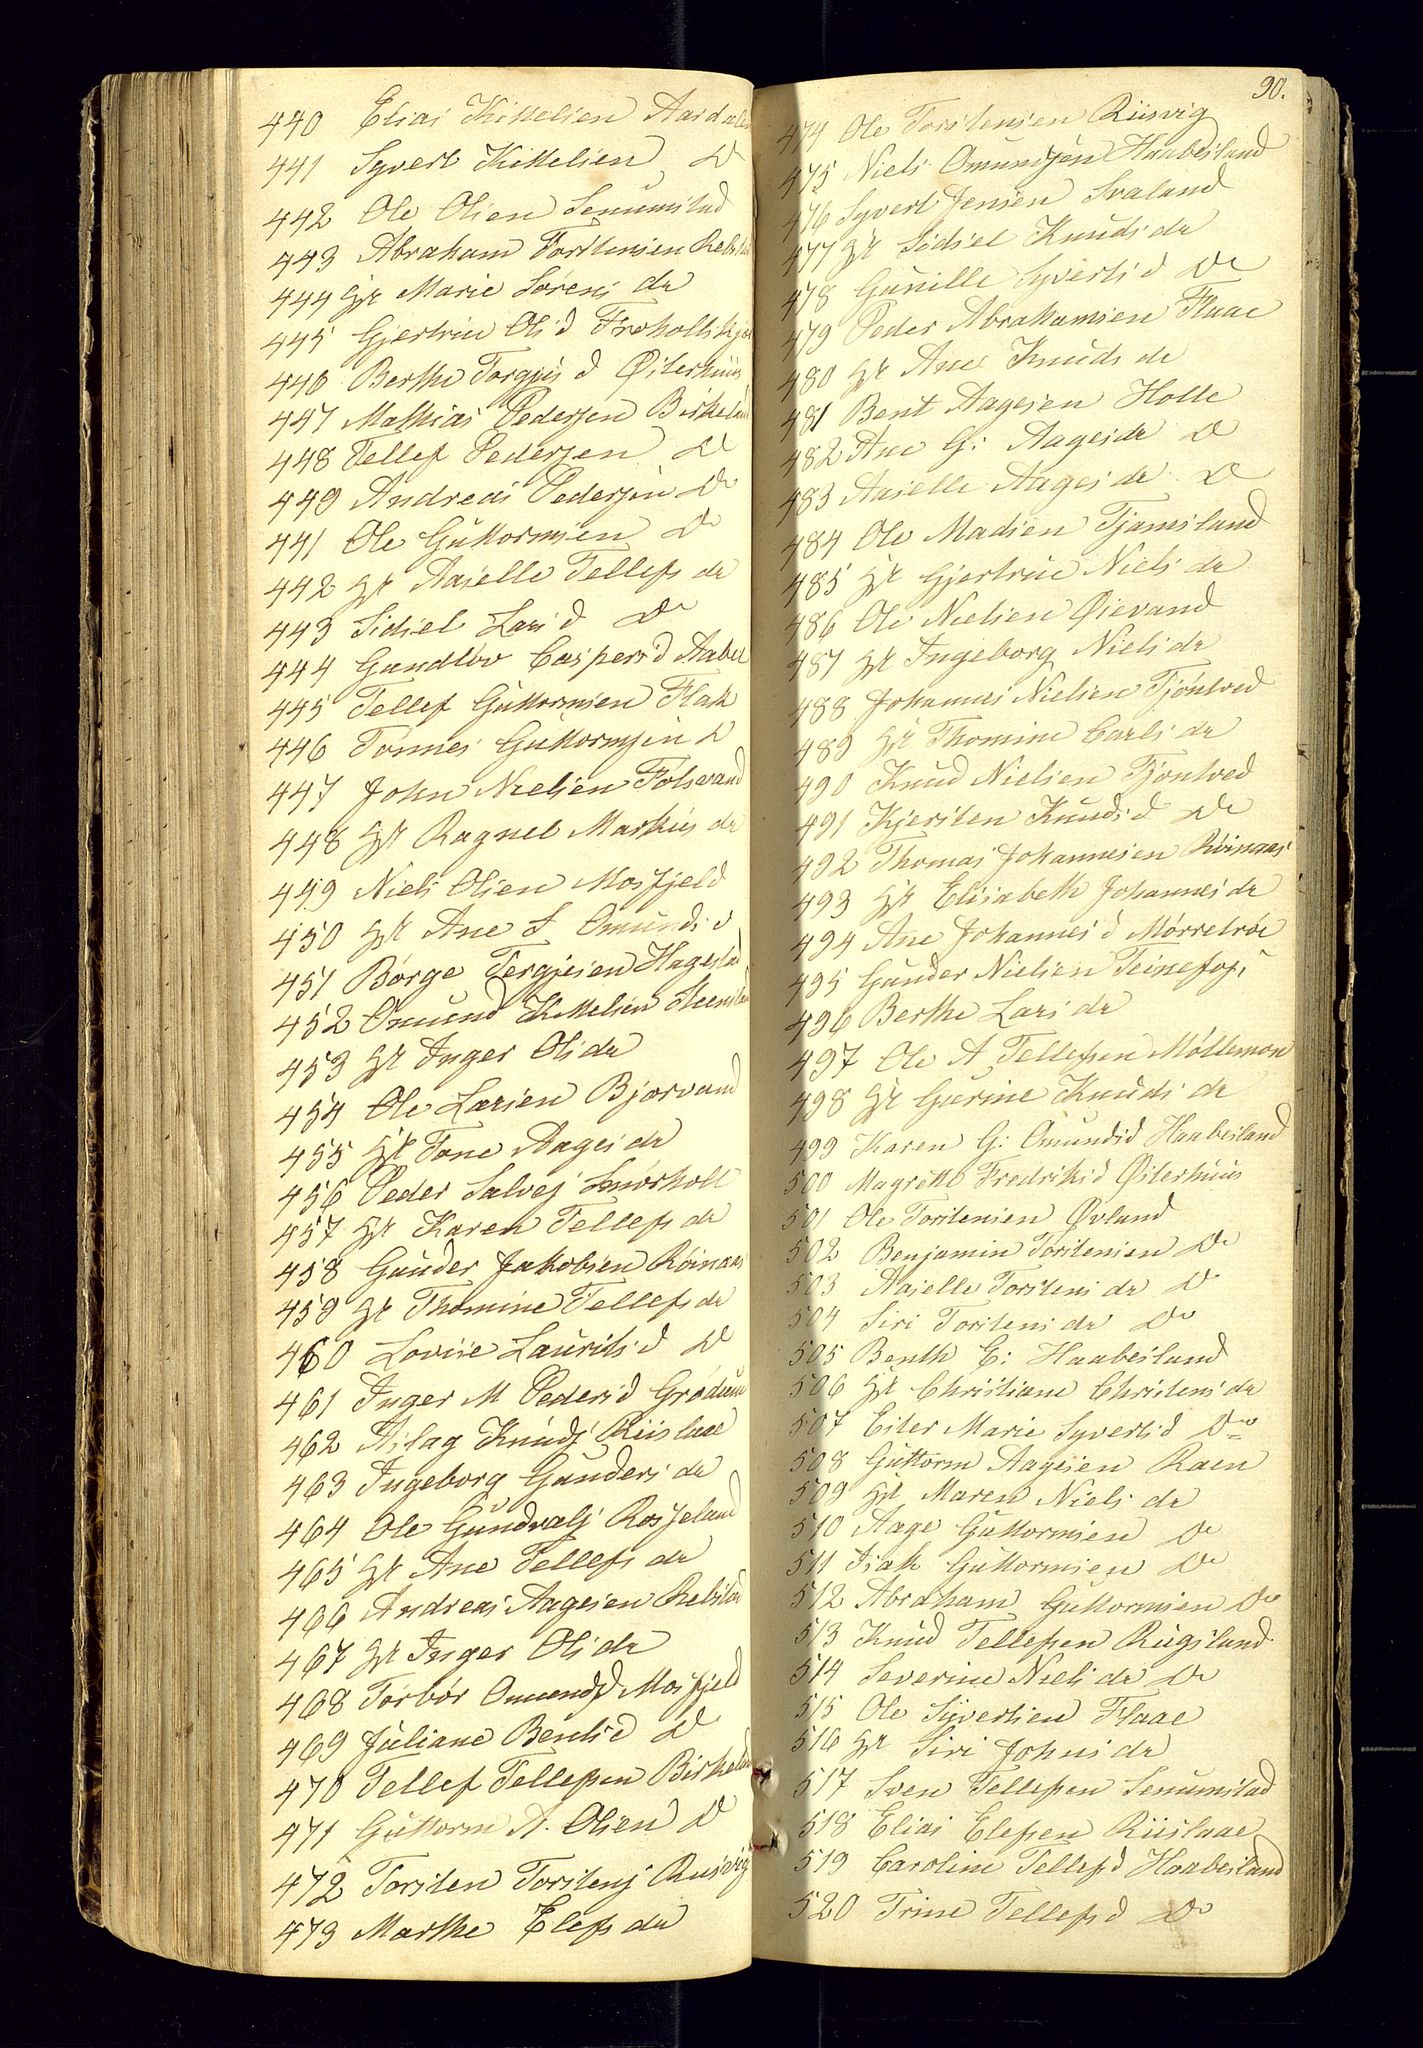 440 Elias Kittelsen Aardalen
441 Syvert Kittelsen Do
442 Ole Olsen Senumstad
443 Abraham Torstensen Rebstad
444 Hr Marie Sørens dr
445 Gjertrue Ols d
446 Berthe Torgjus d Østerhuus
447 Mathias Pedersen Birkeland
448 Tellef Pedersen Do
449 Andreas Pedersen Do
441 Ole Guttormsen Do
442 Hr Aaselle Tellefs dr
443 Sidsel Lars d Do
444 Gundlov Caspers d Aabel
445 Tellef Guttormsen Flak
446 Tønnes Guttormsen D
447 John Nielsen Følsvand
448 Hr Ragnel Markus dr
449 Niels Olsen Mosfjeld
450 Hr Ane S Omunds d
451 Børge Tergjesen Hagestad
452 Omund Kittelsen
453 Hr Inger Ols dr
454 Ole Larsen Bjorvand
455 Hr Tone Aages dr
456 Peder Salves Smørholt
457 Hr Karen Tellefs dr
458 Gunder Jakobsen Røinaas
459 Hr Thomine Tellefs dr
460 Lovise Laurits d Do
461 Inger M Peders d Grødum
462 Aslag Knuds Riislaae
463 Ingeborg Gunders dr
464 Ole Gundvals Rosseland
465 Hr Ane Tellefs dr
466 Andreas Aagesen Rebstad
467 Hr Inger Ols dr
468 Torbor Omunds d Mosfjeld
469 Juliane Bents d Do
470 Tellef Tellefsen Birkeland
471 Guttorm A. Olsen Do
472 Torsten Torstens Riisvig
473 Marthe Elefs dr
90.
474 Ole Torstensen Riisvig
475 Niels Omundsen Haabesland
476 Syvert Jensen Svaland
477 Hr Sidsel Knuds dr
478 Gunille Syverts d Do
479 Peder Abrahamsen Flaae
480 Hr Ane Knuds dr
481 Bent Aagesen Holte
482 Ane G: Aages dr Do
483 Aaselle Aages dr Do
484 Ole Madsen Tjamsland
485 Hr Gjertrue Niels dr
486 Ole Nielsen Øievand
487 Hr Ingeborg Niels dr
488 Johannes Nielsen Tjöntved
489 Hr Thomine Carls dr
490 Knud Nielsen Tjøntved
491 Kjersten Knuds d Do
492 Thomas Johannesen Röinaas
493 Hr Elisabeth Johannes dr
494 Ane Johannes d Mörretröe
495 Gunder Nielsen Teinefoss
496 Berthe Lars dr
497 Ole A Tellefsen Möllemon
498 Hr Gurine Knuds dr
499 Karen G: Omunds d Haabesland
500 Magrette Fredriks d Østerhuus
501 Ole Torstensen Øvland
502 Benjamin Torstensen Do
503 Aaselle Torstens dr Do
504 Siri Torstens dr Do
505 Benth E: Haabesland
506 Hr Christiane Christens dr
507 Ester Marie Syverts d Do
508 Guttorm Aagesen Raen
509 Hr Maren Niels dr
510 Aage Guttormsen Do
511 Isak Guttormsen Do
512 Abraham Guttormsen Do
513 Knud Tellefsen Rugsland
514 Severine Niels dr Do
515 Ole Syvertsen Flaae
516 Hr Siri Johns dr
517 Sven Tellefsen Senumstad
518 Elias Elefsen Riislaae
519 Caroline Tellefs d Haabesland
520 Trine Tellefs d Do